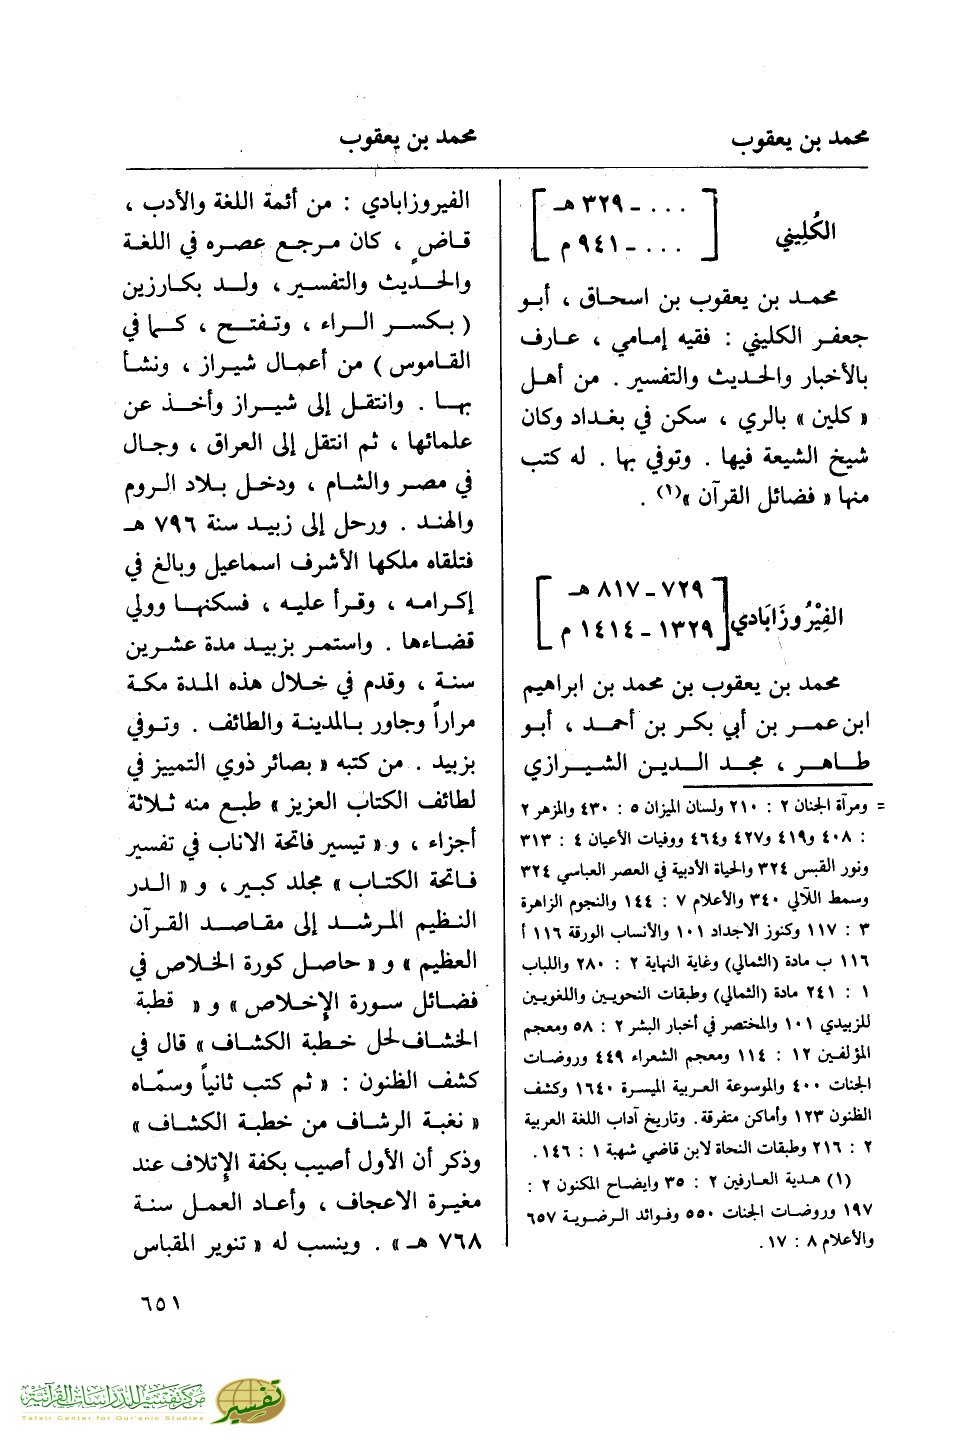 محمد بن يعقوب
محمد بن يعقوب
الكُلِيني
... ـ ٣٢٩ هـ
... ـ ٩٤١ م
محمد بن يعقوب بن اسحاق ، أبو
جعفر الكليني : فقيه إمامي ، عارف
بالأخبار والحديث والتفسير . من أهل
« كلين » بالري ، سكن في بغداد وكان
شيخ الشيعة فيها . وتوفي بها . له كتب
منها « فضائل القرآن »(١) .
الفِيْرُوزَابَادي
٧٢٩ ـ ٨١٧ هـ
١٣٢٩ ـ ١٤١٤ م
محمد بن يعقوب بن محمد بن ابراهيم
ابن عمر بن أبي بكر بن أحمد ، أبو
طاهر ، مجد الدين الشيرازي
= ومرآة الجنان ٢ : ٢١٠ ولسان الميزان ٥ : ٤٣٠ والمزهر ٢
: ٤٠٨ و٤١٩ و٤٢٧ و٤٦٤ ووفيات الأعيان ٤ : ٣١٣
ونور القبس ٣٢٤ والحياة الأدبية في العصر العباسي ٣٢٤
وسمط اللآلي ٣٤٠ والأعلام ٧ : ١٤٤ والنجوم الزاهرة
٣ : ١١٧ وكنوز الاجداد ١٠١ والأنساب الورقة ١١٦ أ
١١٦ ب مادة (الثمالي) وغاية النهاية ٢ : ٢٨٠ واللباب
١ : ٢٤١ مادة (الثمالي) وطبقات النحويين واللغويين
للزبيدي ١٠١ والمختصر في أخبار البشر ٢ : ٥٨ ومعجم
المؤلفين ١٢ : ١١٤ ومعجم الشعراء ٤٤٩ وروضات
الجنات ٤٠٠ والموسوعة العربية الميسرة ١٦٤٠ وكشف
الظنون ١٢٣ وأماكن متفرقة. وتاريخ آداب اللغة العربية
٢ : ٢١٦ وطبقات النحاة لابن قاضي شهبة ١ : ١٤٦.
(١) هدية العارفين ٢ : ٣٥ وايضاح المكنون ٢ :
١٩٧ وروضات الجنات ٥٥٠ وفوائد الرضوية ٦٥٧
والأعلام ٨ : ١٧.
الفيروزابادي : من أئمة اللغة والأدب ،
قاضٍ ، كان مرجع عصره في اللغة
والحديث والتفسير ، ولد بكارزين
( بكسر الراء ، وتفتح ، كما في
القاموس ) من أعمال شيراز ، ونشأ
بها . وانتقل إلى شيراز وأخذ عن
علمائها ، ثم انتقل إلى العراق ، وجال
في مصر والشام ، ودخل بلاد الروم
والهند . ورحل إلى زبيد سنة ٧٩٦ هـ
فتلقاه ملكها الأشرف اسماعيل وبالغ في
إكرامه ، وقرأ عليه ، فسكنها وولي
قضاءها . واستمر بزبيد مدة عشرين
سنة ، وقدم في خلال هذه المدة مكة
مراراً وجاور بالمدينة والطائف . وتوفي
بزبيد . من كتبه « بصائر ذوي التمييز في
لطائف الكتاب العزيز » طبع منه ثلاثة
أجزاء ، و « تيسير فاتحة الاناب في تفسير
فاتحة الكتاب » مجلد كبير ، و « الدر
النظيم المرشد إلى مقاصد القرآن
العظيم » و « حاصل كورة الخلاص في
فضائل سورة الإخلاص » و « قطبة
الخشاف لحل خطبة الكشاف » قال في
كشف الظنون : « ثم كتب ثانياً وسمّاه
« نغبة الرشاف من خطبة الكشاف »
وذكر أن الأول أصيب بكفة الإتلاف عند
مغيرة الاعجاف ، وأعاد العمل سنة
٧٦٨ هـ » . وينسب له « تنوير المقباس
٦٥١
مركز تفسير للدراسات القرآنية
Tafsir Center for Qur'anic Studies
تفسير